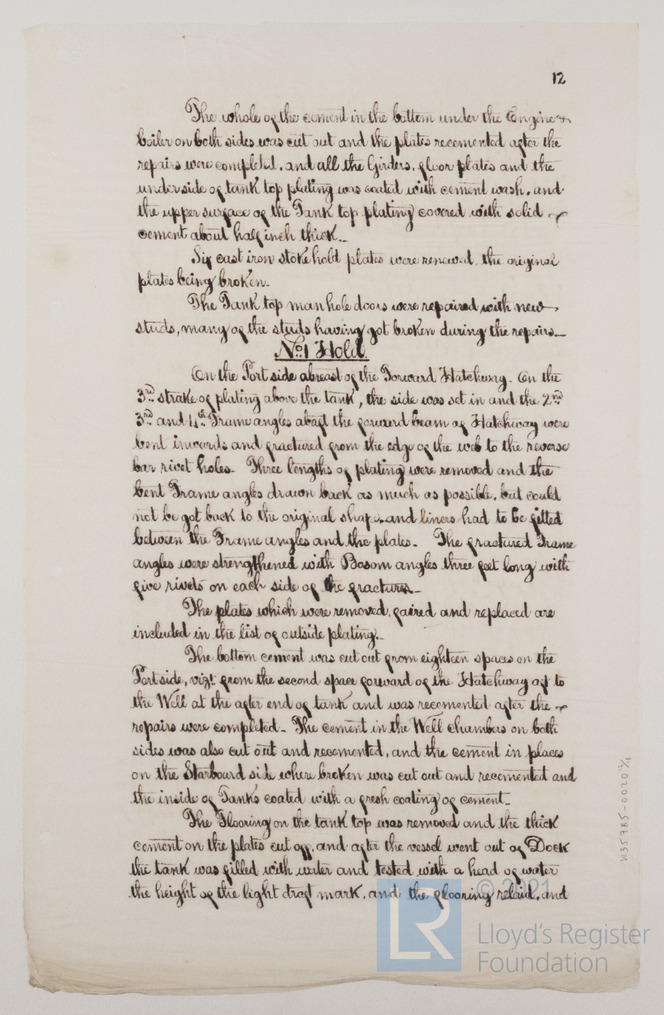 12
The whole of the cement in the bottom under the Engine &
boiler on both sides was cut out and the plates recemented after the
repairs were completed, and all the Girders, floor plates and the
underside of tank top plating was coated with cement wash, and
the upper surface of the Tank top plating covered with solid
cement about half inch thick.
Six cast iron stoke hold plates were renewed, the original
plates being broken.
The Tank top man hole doors were repaired with new
studs, many of the studs having got broken during the repairs.
No. 1 Hold.
On the Port side abreast of the Forward Hatchway. On the
3rd strake of plating above the tank, the side was set in and the 2nd
3rd and 4th Frame angles abaft the forward beam of Hatchway were
bent inwards and fractured from the edge of the web to the reverse
bar rivet holes. Three lengths of plating were removed and the
bent Frame angles drawn back as much as possible, but could
not be got back to the original shape and liners had to be fitted
between the Frame angles and the plates. The fractured Frame
angles were strengthened with Bosom angles three feet long with
five rivets on each side of the fracture.
The plates which were removed, faired and replaced are
included in the list of outside plating.
The bottom cement was cut out from eighteen spaces on the
Port side, vizt. from the second space forward of the Hatchway aft to
the Well at the after end of tank and was recemented after the
repairs were completed. The cement in the Well chambers on both
sides was also cut out and recemented, and the cement in places
on the Starboard side where broken was cut out and recemented and
the inside of Tanks coated with a fresh coating of cement.
The Flooring on the tank top was removed and the thick
cement on the plates cut off, and after the vessel went out of Dock
the tank was filled with water and tested with a head of water
the height of the light draft mark, and the flooring relaid, and
W357B5-0020 12/
© 2021
LR
Lloyd's Register
Foundation